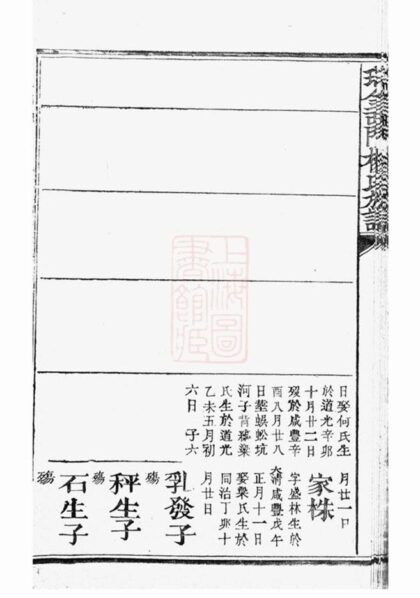 氏族譜
日娶何氏生
於道光辛卯
十月廿二日
歿於咸豐辛
酉八月廿八
日葬蜈蚣坑
河子背
氏生於道光
乙未五月初
六日 子六
月廿一日
家株
字盛林生於
大清咸豐戊午
正月十一日
娶梁氏生於
同治丁卯十
月廿日
乳發子
殤
秤生子
殤
石生子
殤
上海圖
書館藏